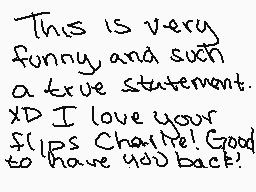 This is very
funny, and such
a true statement.
XD I love your
flips Charlie! Good
to have you back!